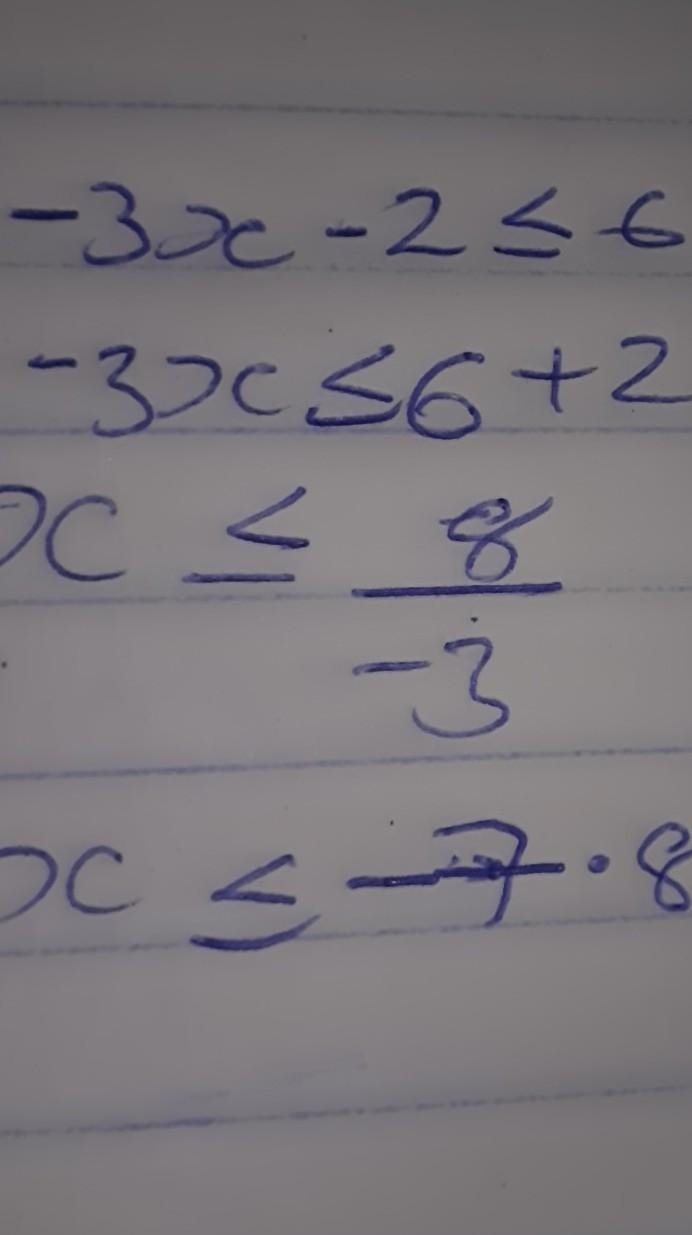 -3x - 2 ≤ 6
-3x ≤ 6 + 2
x ≤ 8
-3
x ≤ -7.8